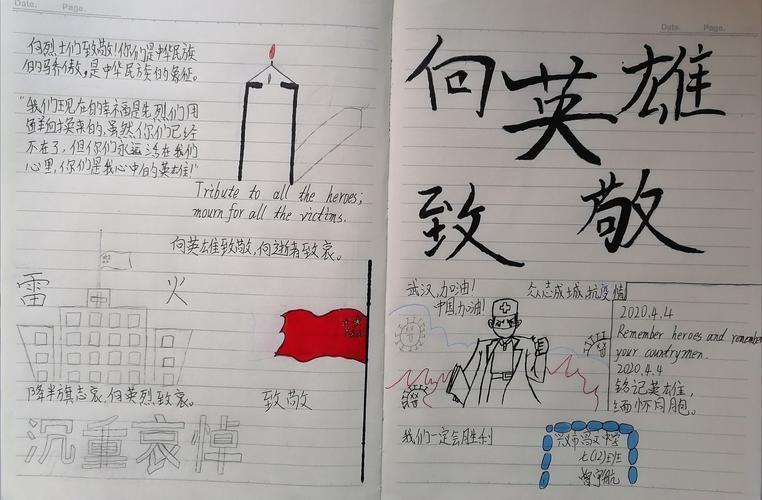 Date.     Page.
向烈士们致敬!你们是中华民族
的骄傲,是中华民族的象征。
"我们现在的幸福是先烈们用
鲜血换来的,虽然你们已经
不在了,但你们永远活在我们
心里,你们是我心中的英雄!"
Tribute to all the heroes;
mourn for all the victims.
向英雄致敬,向逝者致哀。
雷 火
降半旗志哀,向英烈致哀。
致敬
沉重哀悼
Date.     Page.
向英雄
致敬
武汉,加油!
中国加油!
众志成城,抗疫情
2020.4.4
Remember heroes and remember
your countrymen.
2020.4.4
铭记英雄,
缅怀同胞。
我们一定会胜利
七(12)